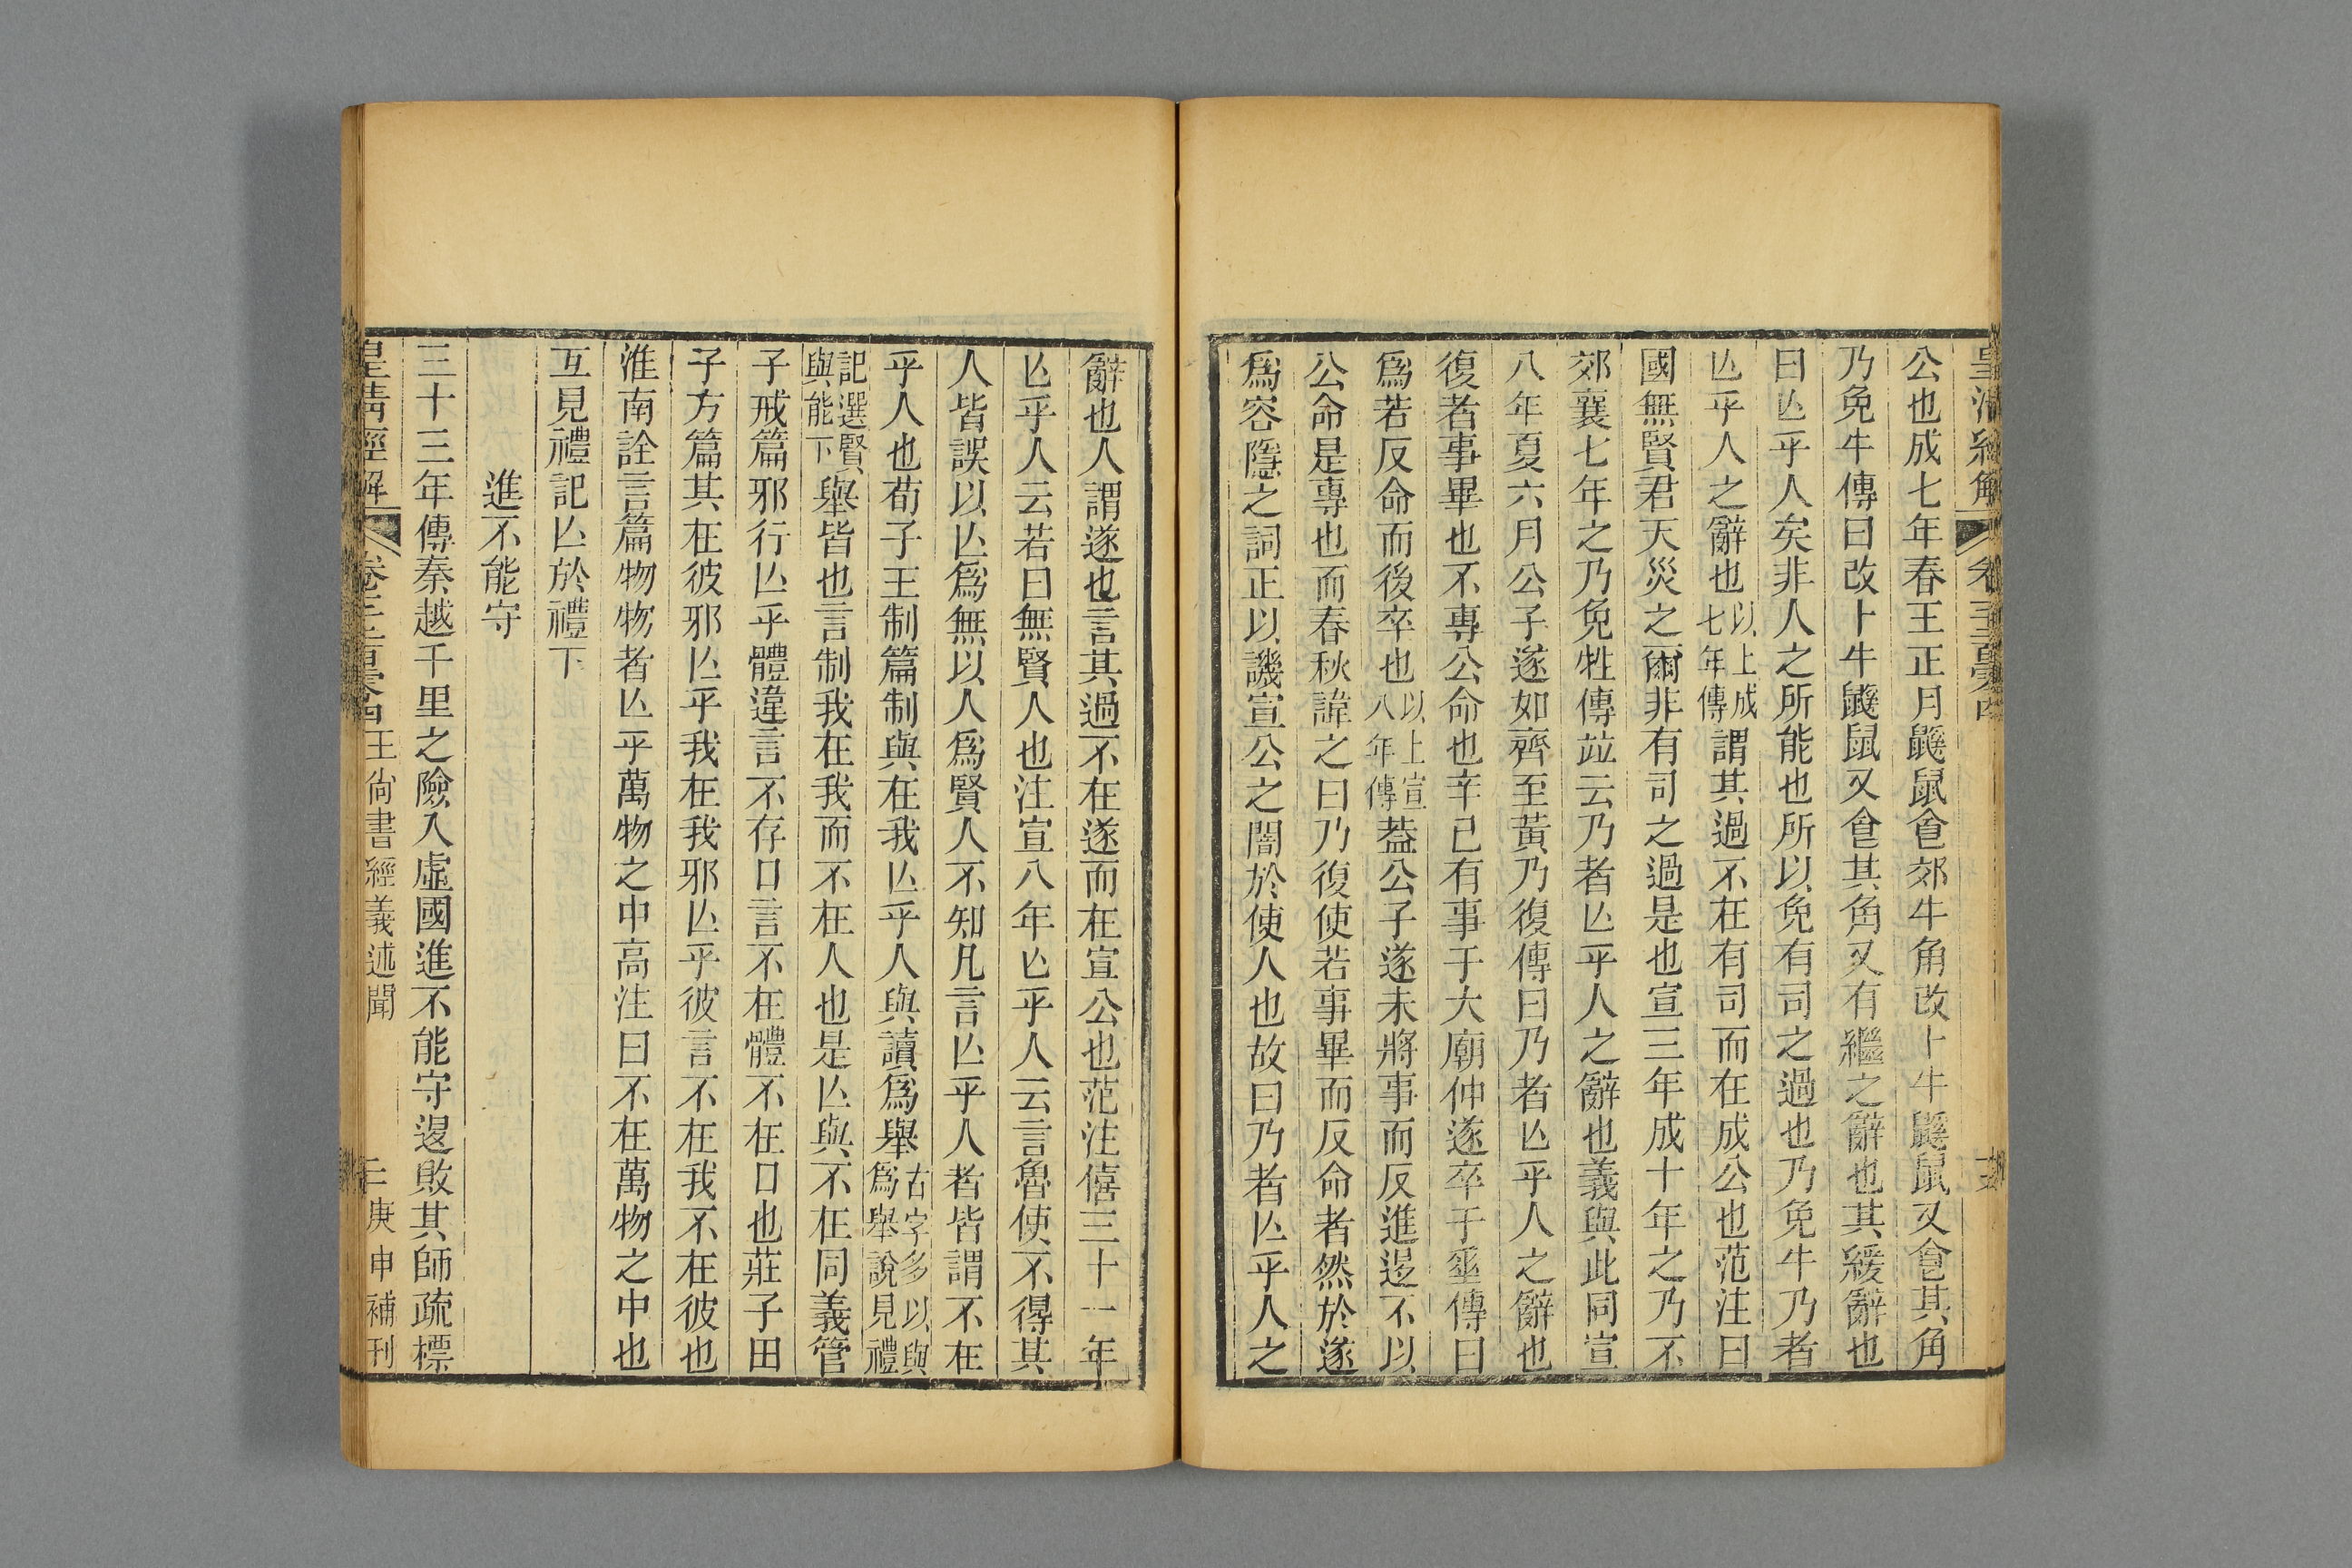 皇清經解 卷千二百零四
公也成七年春王正月鼷鼠𠊊郊牛角改卜牛鼷鼠又𠊊其角
乃免牛傳曰改卜牛鼷鼠又𠊊其角又有繼之辭也其緩辭也
曰亾乎人矣非人之所能也所以免有司之過也乃免牛乃者
亾乎人之辭也以上成七年傳謂其過不在有司而在成公也范注曰
國無賢君天災之爾非有司之過是也宣三年成十年之乃不
郊襄七年之乃免牲傳竝云乃者亾乎人之辭也義與此同宣
八年夏六月公子遂如齊至黃乃復傳曰乃者亾乎人之辭也
復者事畢也不專公命也辛巳有事于大廟仲遂卒于垂傳曰
爲若反命而後卒也以上宣八年傳葢公子遂未將事而反進退不以
公命是專也而春秋諱之曰乃復使若事畢而反命者然於遂
爲容隱之詞正以譏宣公之闇於使人也故曰乃者亾乎人之
辭也人謂遂也言其過不在遂而在宣公也范注僖三十一年
亾乎人云若曰無賢人也注宣八年亾乎人云言魯使不得其
人皆誤以亾爲無以人爲賢人不知凡言亾乎人者皆謂不在
乎人也荀子王制篇制與在我亾乎人與讀爲舉古字多以與爲舉說見禮
記選賢與能下舉皆也言制我在我而不在人也是亾與不在同義管
子戒篇邪行亾乎體違言不存口言不在體不在口也莊子田
子方篇其在彼邪亾乎我在我邪亾乎彼言不在我不在彼也
淮南詮言篇物物者亾乎萬物之中高注曰不在萬物之中也
互見禮記亾於禮下
進不能守
三十三年傳秦越千里之險入虛國進不能守退敗其師疏標
皇清經解 卷千二百零四 王尙書經義述聞 庚申補刊